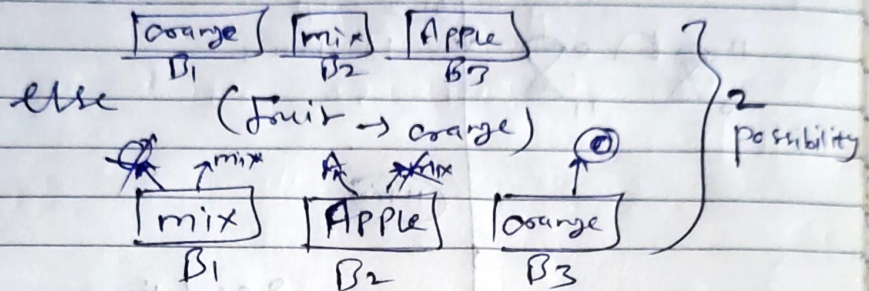 orange mix Apple
B1 B2 B3
else (fruit → orange) 2 possibility
mix A mix O
mix Apple orange
B1 B2 B3